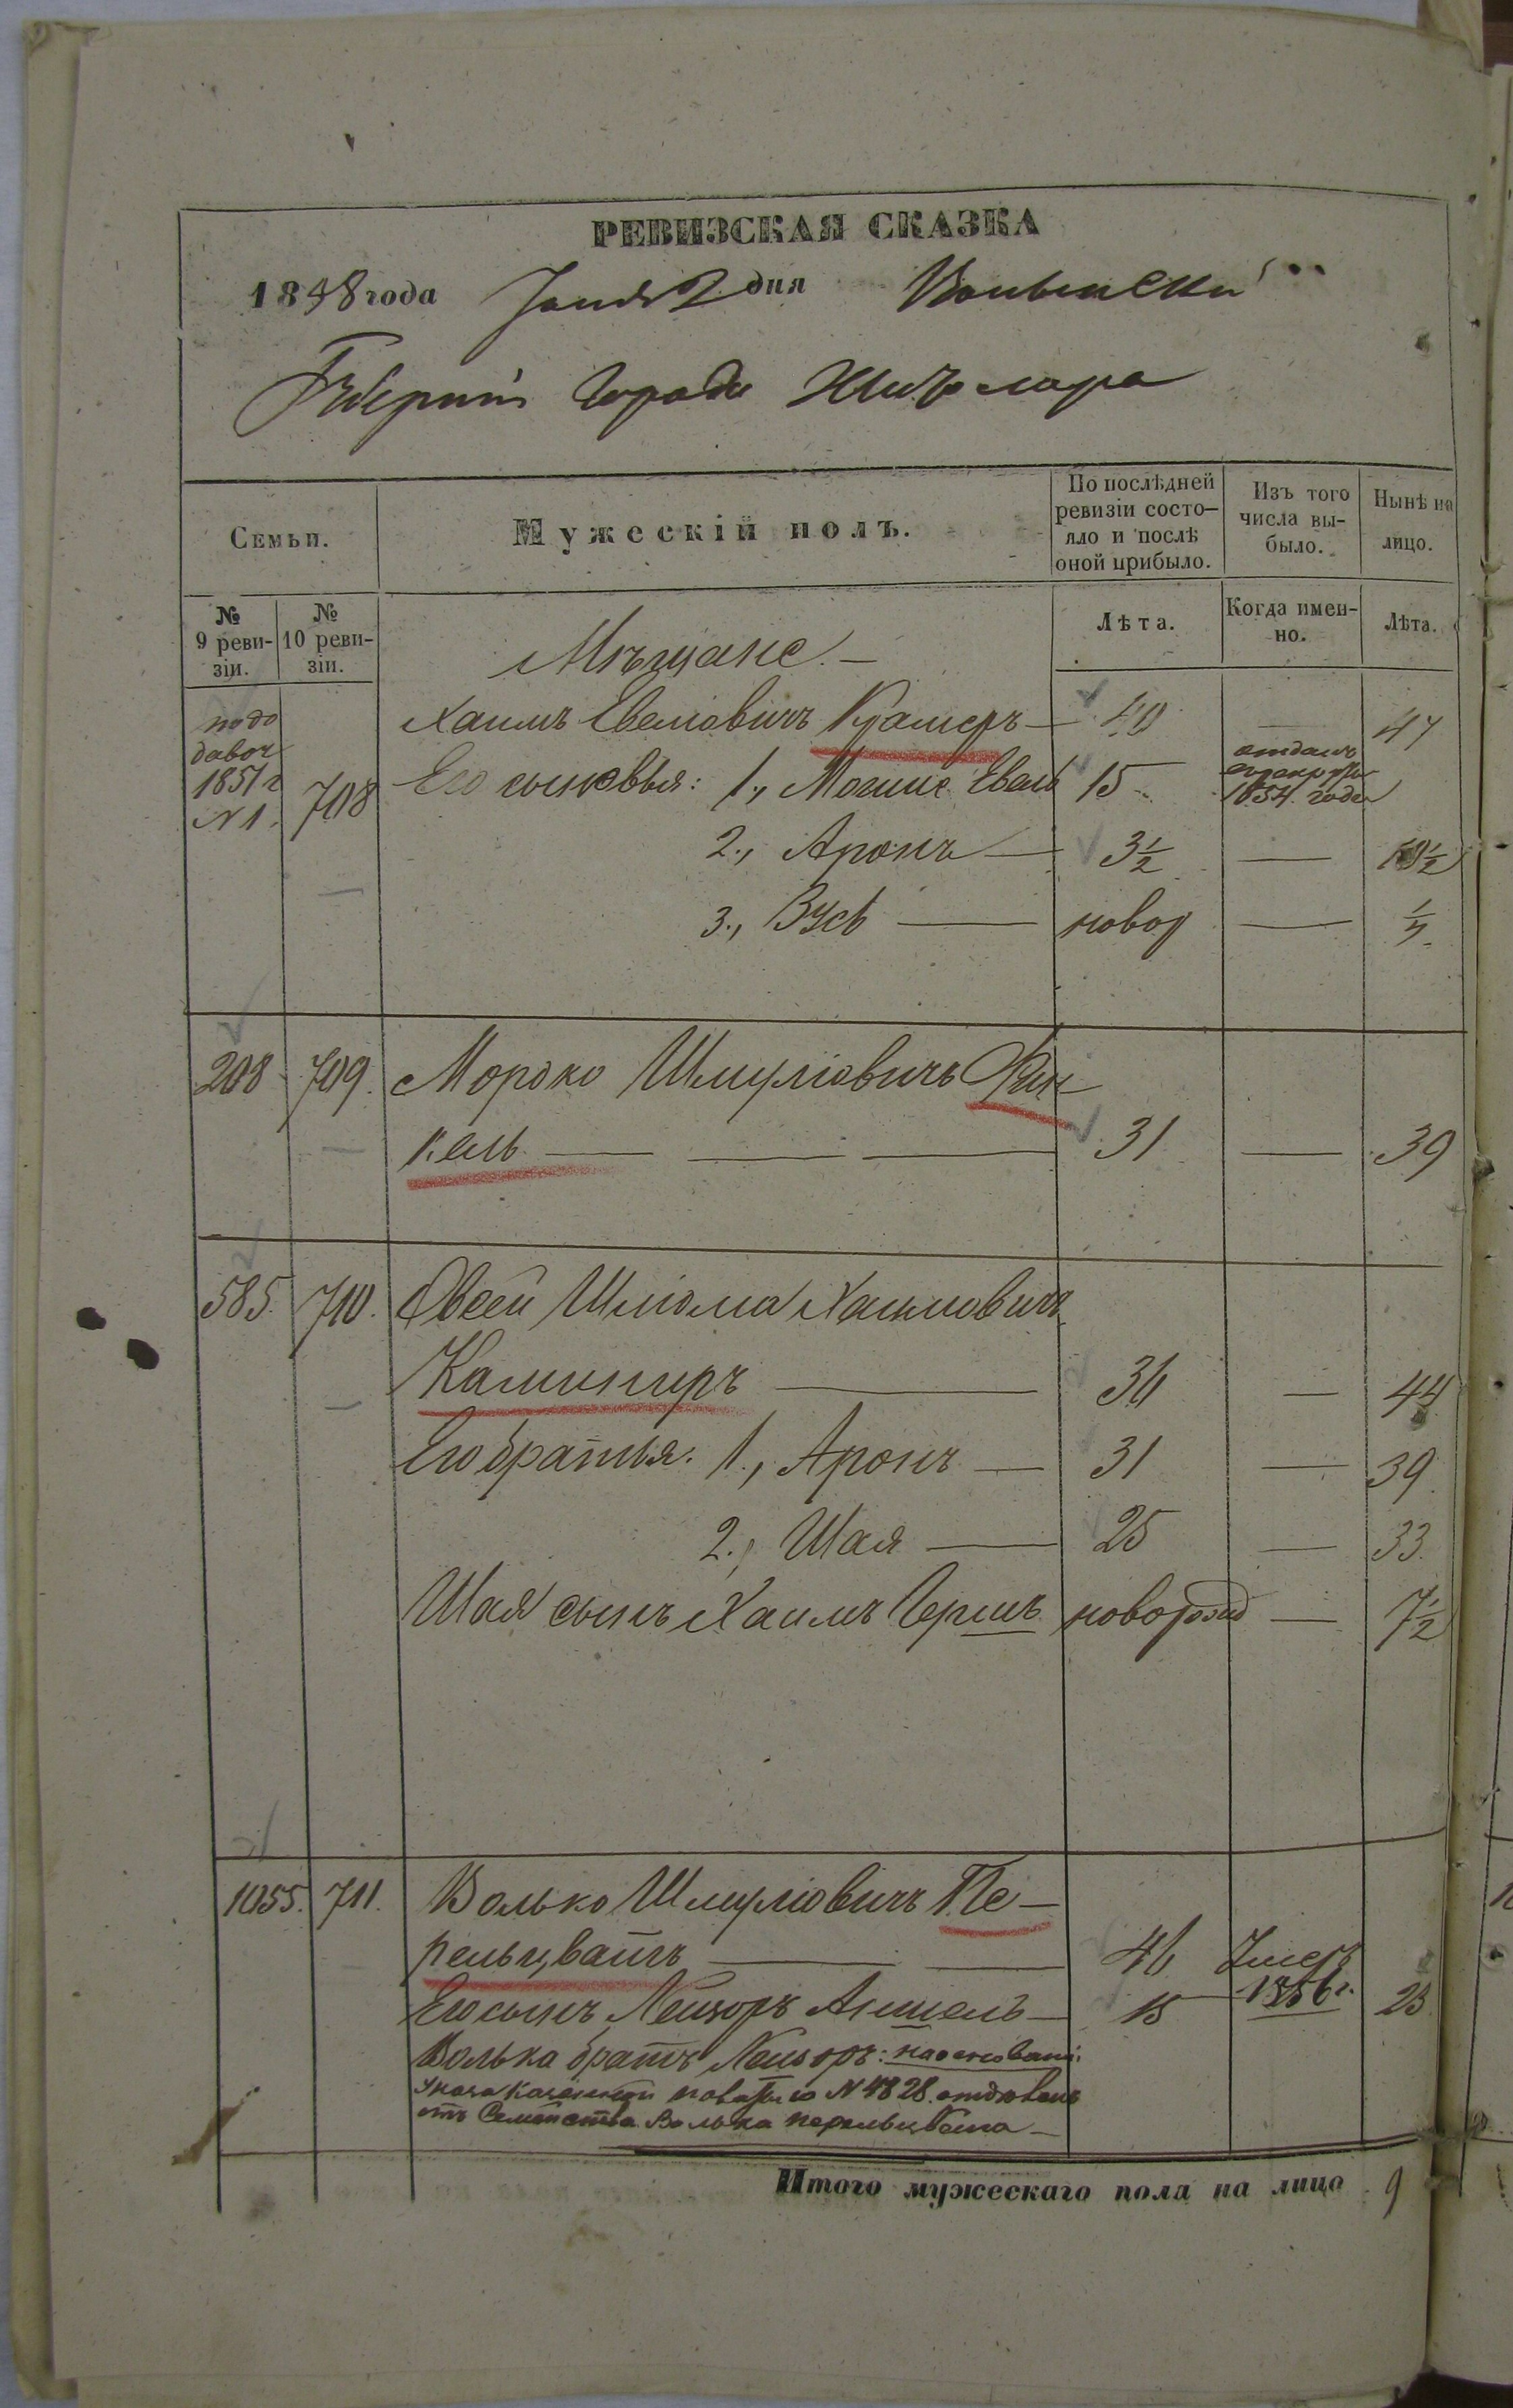 РЕВИЗСКАЯ СКАЗКА
1858 года Іюня 2 дня Волынской
Губерніи Города Житомира
Семьи.
Мужескій полъ.
По послѣдней ревизіи состо-
яло и послѣ
оной прибыло.
Изъ того
числа вы-
было.
Нынѣ на
лицо.
№
9 реви-
зіи.
№
10 реви-
зіи.
Лѣта.
Когда имен-
но.
Лѣта.
Мѣщане. —
по до
давоч
1851 г
N 1.
708
Хаимъ Евелiовичъ Крамеръ — 40 — 47
Его сыновья: 1., Мошко Евель 15 отданъ
1854. года
2., Аронъ — 3½ — 10½
3., Зусь — новор —
208 709. Мордко Шмулiовичъ Фин-
кель — — — 31 — 39
585. 710. Овсей Шлiома Хаимовичъ
Каминиръ — 36 — 44
Его братья. 1., Аронъ — 31 — 39.
2., Шая — 25 — 33.
Шая сынъ Хаимъ Гершъ новорожд — 7½
1055. 711. Волько Шмулiовичъ Пе-
рельцвайгъ — — 46 Умеръ
1856 г.
Его сынъ Лейзоръ Аншель — 15 23
Волька братъ Лейзоръ: на основаніи
указа Казенной Палаты N 4828. отдѣленъ
отъ Семейства Волька Перельцвейга —
Итого мужескаго пола на лицо 9